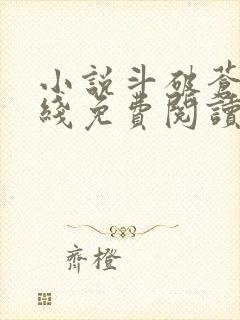 小說斗破蒼
綫免費閱讀
齊橙